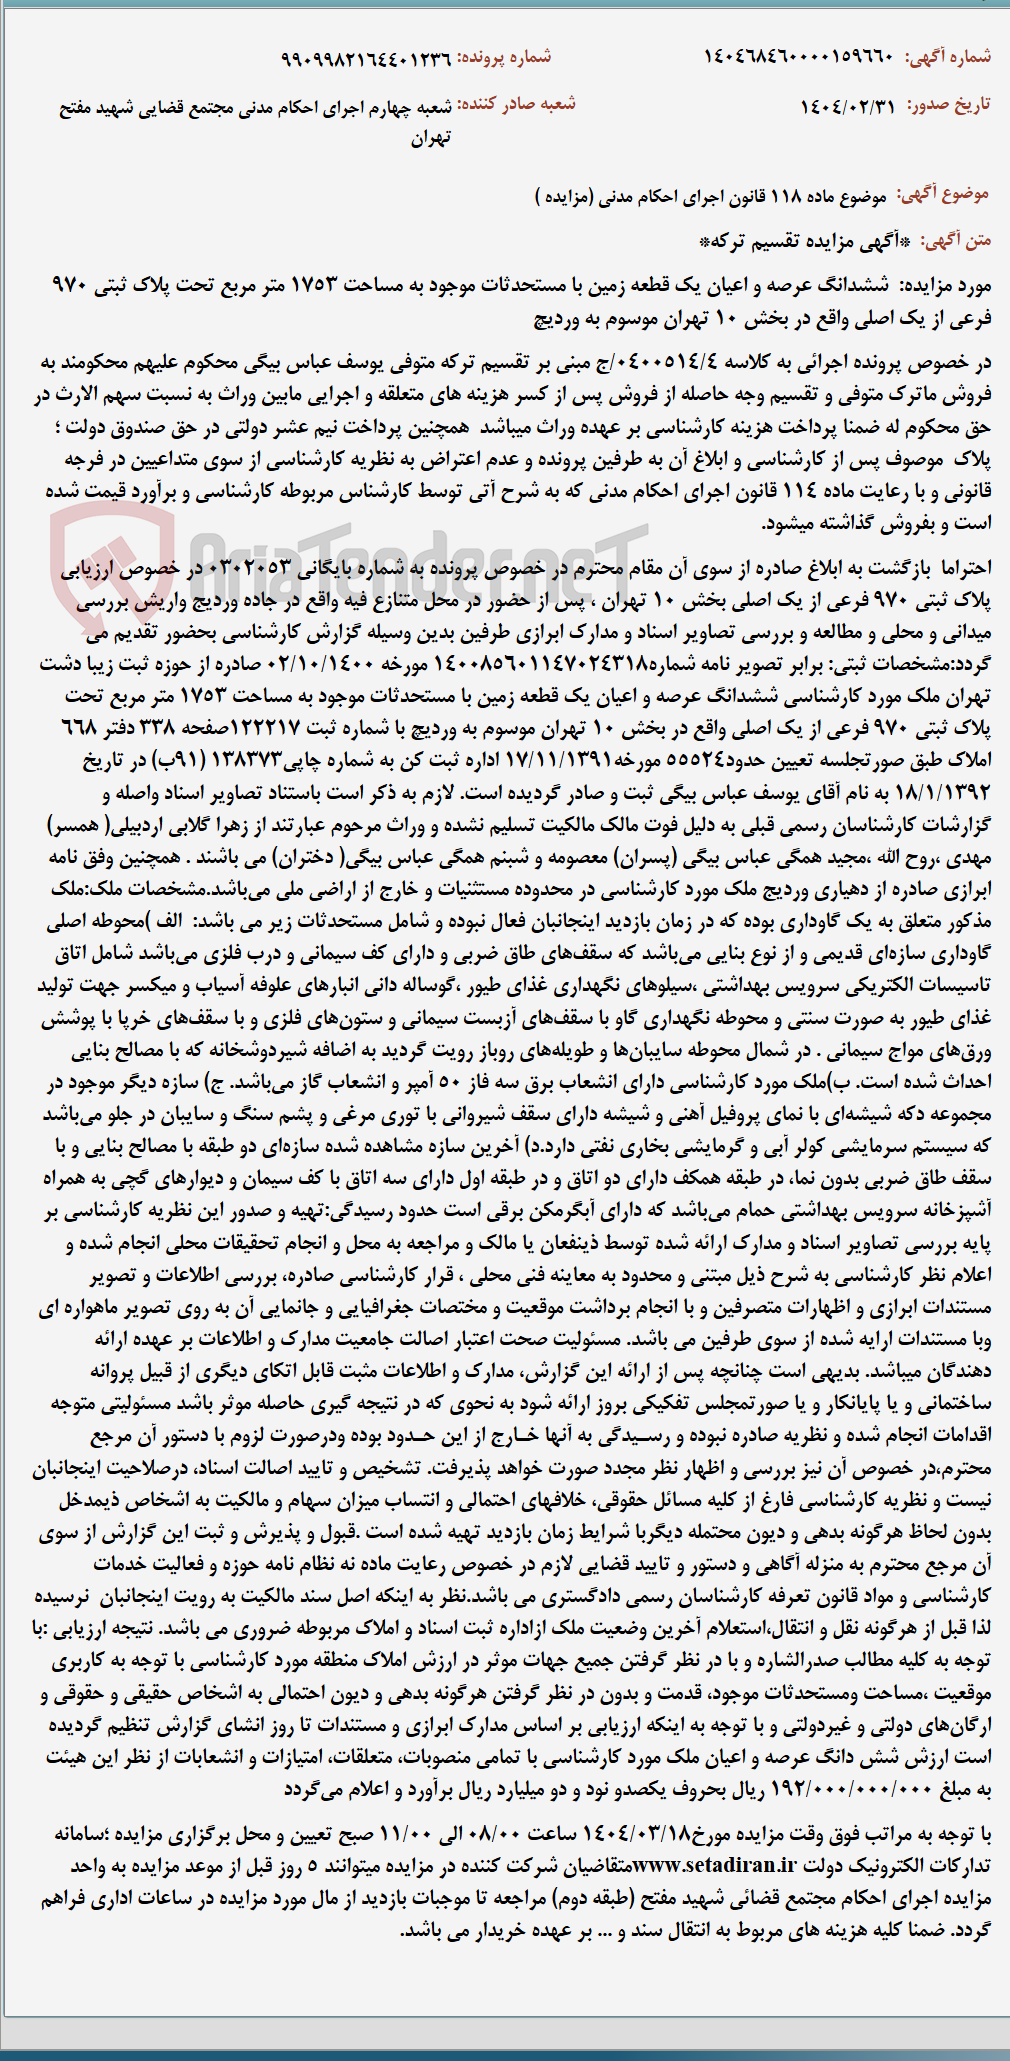 شماره آگهی: ۱۴۰۴۶۸۴۶۰۰۰۰۱۵۹۶۶۰ شماره پرونده: ۹۹۰۹۹۸۲۱۶۴۴۰۱۲۳۶
تاریخ صدور: ۱۴۰۴/۰۲/۳۱ شعبه صادر کننده: شعبه چهارم اجرای احکام مدنی مجتمع قضایی شهید مفتح
تهران
موضوع آگهی: موضوع ماده ۱۱۸ قانون اجرای احکام مدنی (مزایده )
متن آگهی: *آگهی مزایده تقسیم ترکه*
مورد مزایده: ششدانگ عرصه و اعیان یک قطعه زمین با مستحدثات موجود به مساحت ۱۷۵۳ متر مربع تحت پلاک ثبتی ۹۷۰
فرعی از یک اصلی واقع در بخش ۱۰ تهران موسوم به وردیچ
در خصوص پرونده اجرائی به کلاسه ۰۴۰۰۵۱۴/۴/ج مبنی بر تقسیم ترکه متوفی یوسف عباس بیگی محکوم علیهم محکومند به
فروش ماترک متوفی و تقسیم وجه حاصله از فروش پس از کسر هزینه های متعلقه و اجرایی مابین وراث به نسبت سهم الارث در
حق محکوم له ضمنا پرداخت هزینه کارشناسی بر عهده وراث میباشد همچنین پرداخت نیم عشر دولتی در حق صندوق دولت ؛
پلاک موصوف پس از کارشناسی و ابلاغ آن به طرفین پرونده و عدم اعتراض به نظریه کارشناسی از سوی متداعیین در فرجه
قانونی و با رعایت ماده ۱۱۴ قانون اجرای احکام مدنی که به شرح آتی توسط کارشناس مربوطه کارشناسی و برآورد قیمت شده
است و بفروش گذاشته میشود.
AriaTender.neT
احتراما بازگشت به ابلاغ صادره از سوی آن مقام محترم در خصوص پرونده به شماره بایگانی ۰۳۰۲۰۵۳ در خصوص ارزیابی
پلاک ثبتی ۹۷۰ فرعی از یک اصلی بخش ۱۰ تهران ، پس از حضور در محل متنازع فیه واقع در جاده وردیج واریش بررسی
میدانی و محلی و مطالعه و بررسی تصاویر اسناد و مدارک ابرازی طرفین بدین وسیله گزارش کارشناسی بحضور تقدیم می
گردد:مشخصات ثبتی: برابر تصویر نامه شماره۱۴۰۰۸۵۶۰۱۱۴۷۰۲۴۳۱۸ مورخه ۰۲/۱۰/۱۴۰۰ صادره از حوزه ثبت زیبا دشت
تهران ملک مورد کارشناسی ششدانگ عرصه و اعیان یک قطعه زمین با مستحدثات موجود به مساحت ۱۷۵۳ متر مربع تحت
پلاک ثبتی ۹۷۰ فرعی از یک اصلی واقع در بخش ۱۰ تهران موسوم به وردیچ با شماره ثبت ۱۲۲۲۱۷صفحه ۳۳۸ دفتر ۶۶۸
املاک طبق صورتجلسه تعیین حدود۵۵۵۲۴ مورخه۱۷/۱۱/۱۳۹۱ اداره ثبت کن به شماره چاپی۱۳۸۳۷۳ (۹۱ب) در تاریخ
۱۸/۱/۱۳۹۲ به نام آقای یوسف عباس بیگی ثبت و صادر گردیده است. لازم به ذکر است باستناد تصاویر اسناد واصله و
گزارشات کارشناسان رسمی قبلی به دلیل فوت مالک مالکیت تسلیم نشده و وراث مرحوم عبارتند از زهرا گلابی اردبیلی( همسر)
مهدی ،روح الله ،مجید همگی عباس بیگی (پسران) معصومه و شبنم همگی عباس بیگی( دختران) می باشند . همچنین وفق نامه
ابرازی صادره از دهیاری وردیچ ملک مورد کارشناسی در محدوده مستثنیات و خارج از اراضی ملی می‌باشد.مشخصات ملک:ملک
مذکور متعلق به یک گاوداری بوده که در زمان بازدید اینجانبان فعال نبوده و شامل مستحدثات زیر می باشد: الف )محوطه اصلی
گاوداری سازه‌ای قدیمی و از نوع بنایی می‌باشد که سقف‌های طاق ضربی و دارای کف سیمانی و درب فلزی می‌باشد شامل اتاق
تاسیسات الکتریکی سرویس بهداشتی ،سیلوهای نگهداری غذای طیور ،گوساله دانی انبارهای علوفه آسیاب و میکسر جهت تولید
غذای طیور به صورت سنتی و محوطه نگهداری گاو با سقف‌های آزبست سیمانی و ستون‌های فلزی و با سقف‌های خرپا با پوشش
ورق‌های مواج سیمانی . در شمال محوطه سایبان‌ها و طویله‌های روباز رویت گردید به اضافه شیردوشخانه که با مصالح بنایی
احداث شده است. ب)ملک مورد کارشناسی دارای انشعاب برق سه فاز ۵۰ آمپر و انشعاب گاز می‌باشد. ج) سازه دیگر موجود در
مجموعه دکه شیشه‌ای با نمای پروفیل آهنی و شیشه دارای سقف شیروانی با توری مرغی و پشم سنگ و سایبان در جلو می‌باشد
که سیستم سرمایشی کولر آبی و گرمایشی بخاری نفتی دارد.د) آخرین سازه مشاهده شده سازه‌ای دو طبقه با مصالح بنایی و با
سقف طاق ضربی بدون نما، در طبقه همکف دارای دو اتاق و در طبقه اول دارای سه اتاق با کف سیمان و دیوارهای گچی به همراه
آشپزخانه سرویس بهداشتی حمام می‌باشد که دارای آبگرمکن برقی است حدود رسیدگی:تهیه و صدور این نظریه کارشناسی بر
پایه بررسی تصاویر اسناد و مدارک ارائه شده توسط ذینفعان یا مالک و مراجعه به محل و انجام تحقیقات محلی انجام شده و
اعلام نظر کارشناسی به شرح ذیل مبتنی و محدود به معاینه فنی محلی ، قرار کارشناسی صادره، بررسی اطلاعات و تصویر
مستندات ابرازی و اظهارات متصرفین و با انجام برداشت موقعیت و مختصات جغرافیایی و جانمایی آن به روی تصویر ماهواره ای
وبا مستندات ارایه شده از سوی طرفین می باشد. مسئولیت صحت اعتبار اصالت جامعیت مدارک و اطلاعات بر عهده ارائه
دهندگان میباشد. بدیهی است چنانچه پس از ارائه این گزارش، مدارک و اطلاعات مثبت قابل اتکای دیگری از قبیل پروانه
ساختمانی و یا پایانکار و یا صورتمجلس تفکیکی بروز ارائه شود به نحوی که در نتیجه گیری حاصله موثر باشد مسئولیتی متوجه
اقدامات انجام شده و نظریه صادره نبوده و رسـیدگی به آنها خـارج از این حـدود بوده ودرصورت لزوم با دستور آن مرجع
محترم،در خصوص آن نیز بررسی و اظهار نظر مجدد صورت خواهد پذیرفت. تشخیص و تایید اصالت اسناد، درصلاحیت اینجانبان
نیست و نظریه کارشناسی فارغ از کلیه مسائل حقوقی، خلافهای احتمالی و انتساب میزان سهام و مالکیت به اشخاص ذیمدخل
بدون لحاظ هرگونه بدهی و دیون محتمله دیگربا شرایط زمان بازدید تهیه شده است .قبول و پذیرش و ثبت این گزارش از سوی
آن مرجع محترم به منزله آگاهی و دستور و تایید قضایی لازم در خصوص رعایت ماده نه نظام نامه حوزه و فعالیت خدمات
کارشناسی و مواد قانون تعرفه کارشناسان رسمی دادگستری می باشد.نظر به اینکه اصل سند مالکیت به رویت اینجانبان نرسیده
لذا قبل از هرگونه نقل و انتقال،استعلام آخرین وضعیت ملک ازاداره ثبت اسناد و املاک مربوطه ضروری می باشد. نتیجه ارزیابی :با
توجه به کلیه مطالب صدرالشاره و با در نظر گرفتن جمیع جهات موثر در ارزش املاک منطقه مورد کارشناسی با توجه به کاربری
موقعیت ،مساحت ومستحدثات موجود، قدمت و بدون در نظر گرفتن هرگونه بدهی و دیون احتمالی به اشخاص حقیقی و حقوقی و
ارگان‌های دولتی و غیردولتی و با توجه به اینکه ارزیابی بر اساس مدارک ابرازی و مستندات تا روز انشای گزارش تنظیم گردیده
است ارزش شش دانگ عرصه و اعیان ملک مورد کارشناسی با تمامی منصوبات، متعلقات، امتیازات و انشعابات از نظر این هیئت
به مبلغ ۱۹۲/۰۰۰/۰۰۰/۰۰۰ ریال بحروف یکصدو نود و دو میلیارد ریال برآورد و اعلام می‌گردد
با توجه به مراتب فوق وقت مزایده مورخ۱۴۰۴/۰۳/۱۸ ساعت ۰۸/۰۰ الی ۱۱/۰۰ صبح تعیین و محل برگزاری مزایده ؛سامانه
تدارکات الکترونیک دولت www.setadiran.irمتقاضیان شرکت کننده در مزایده میتوانند ۵ روز قبل از موعد مزایده به واحد
مزایده اجرای احکام مجتمع قضائی شهید مفتح (طبقه دوم) مراجعه تا موجبات بازدید از مال مورد مزایده در ساعات اداری فراهم
گردد. ضمنا کلیه هزینه های مربوط به انتقال سند و ... بر عهده خریدار می باشد.